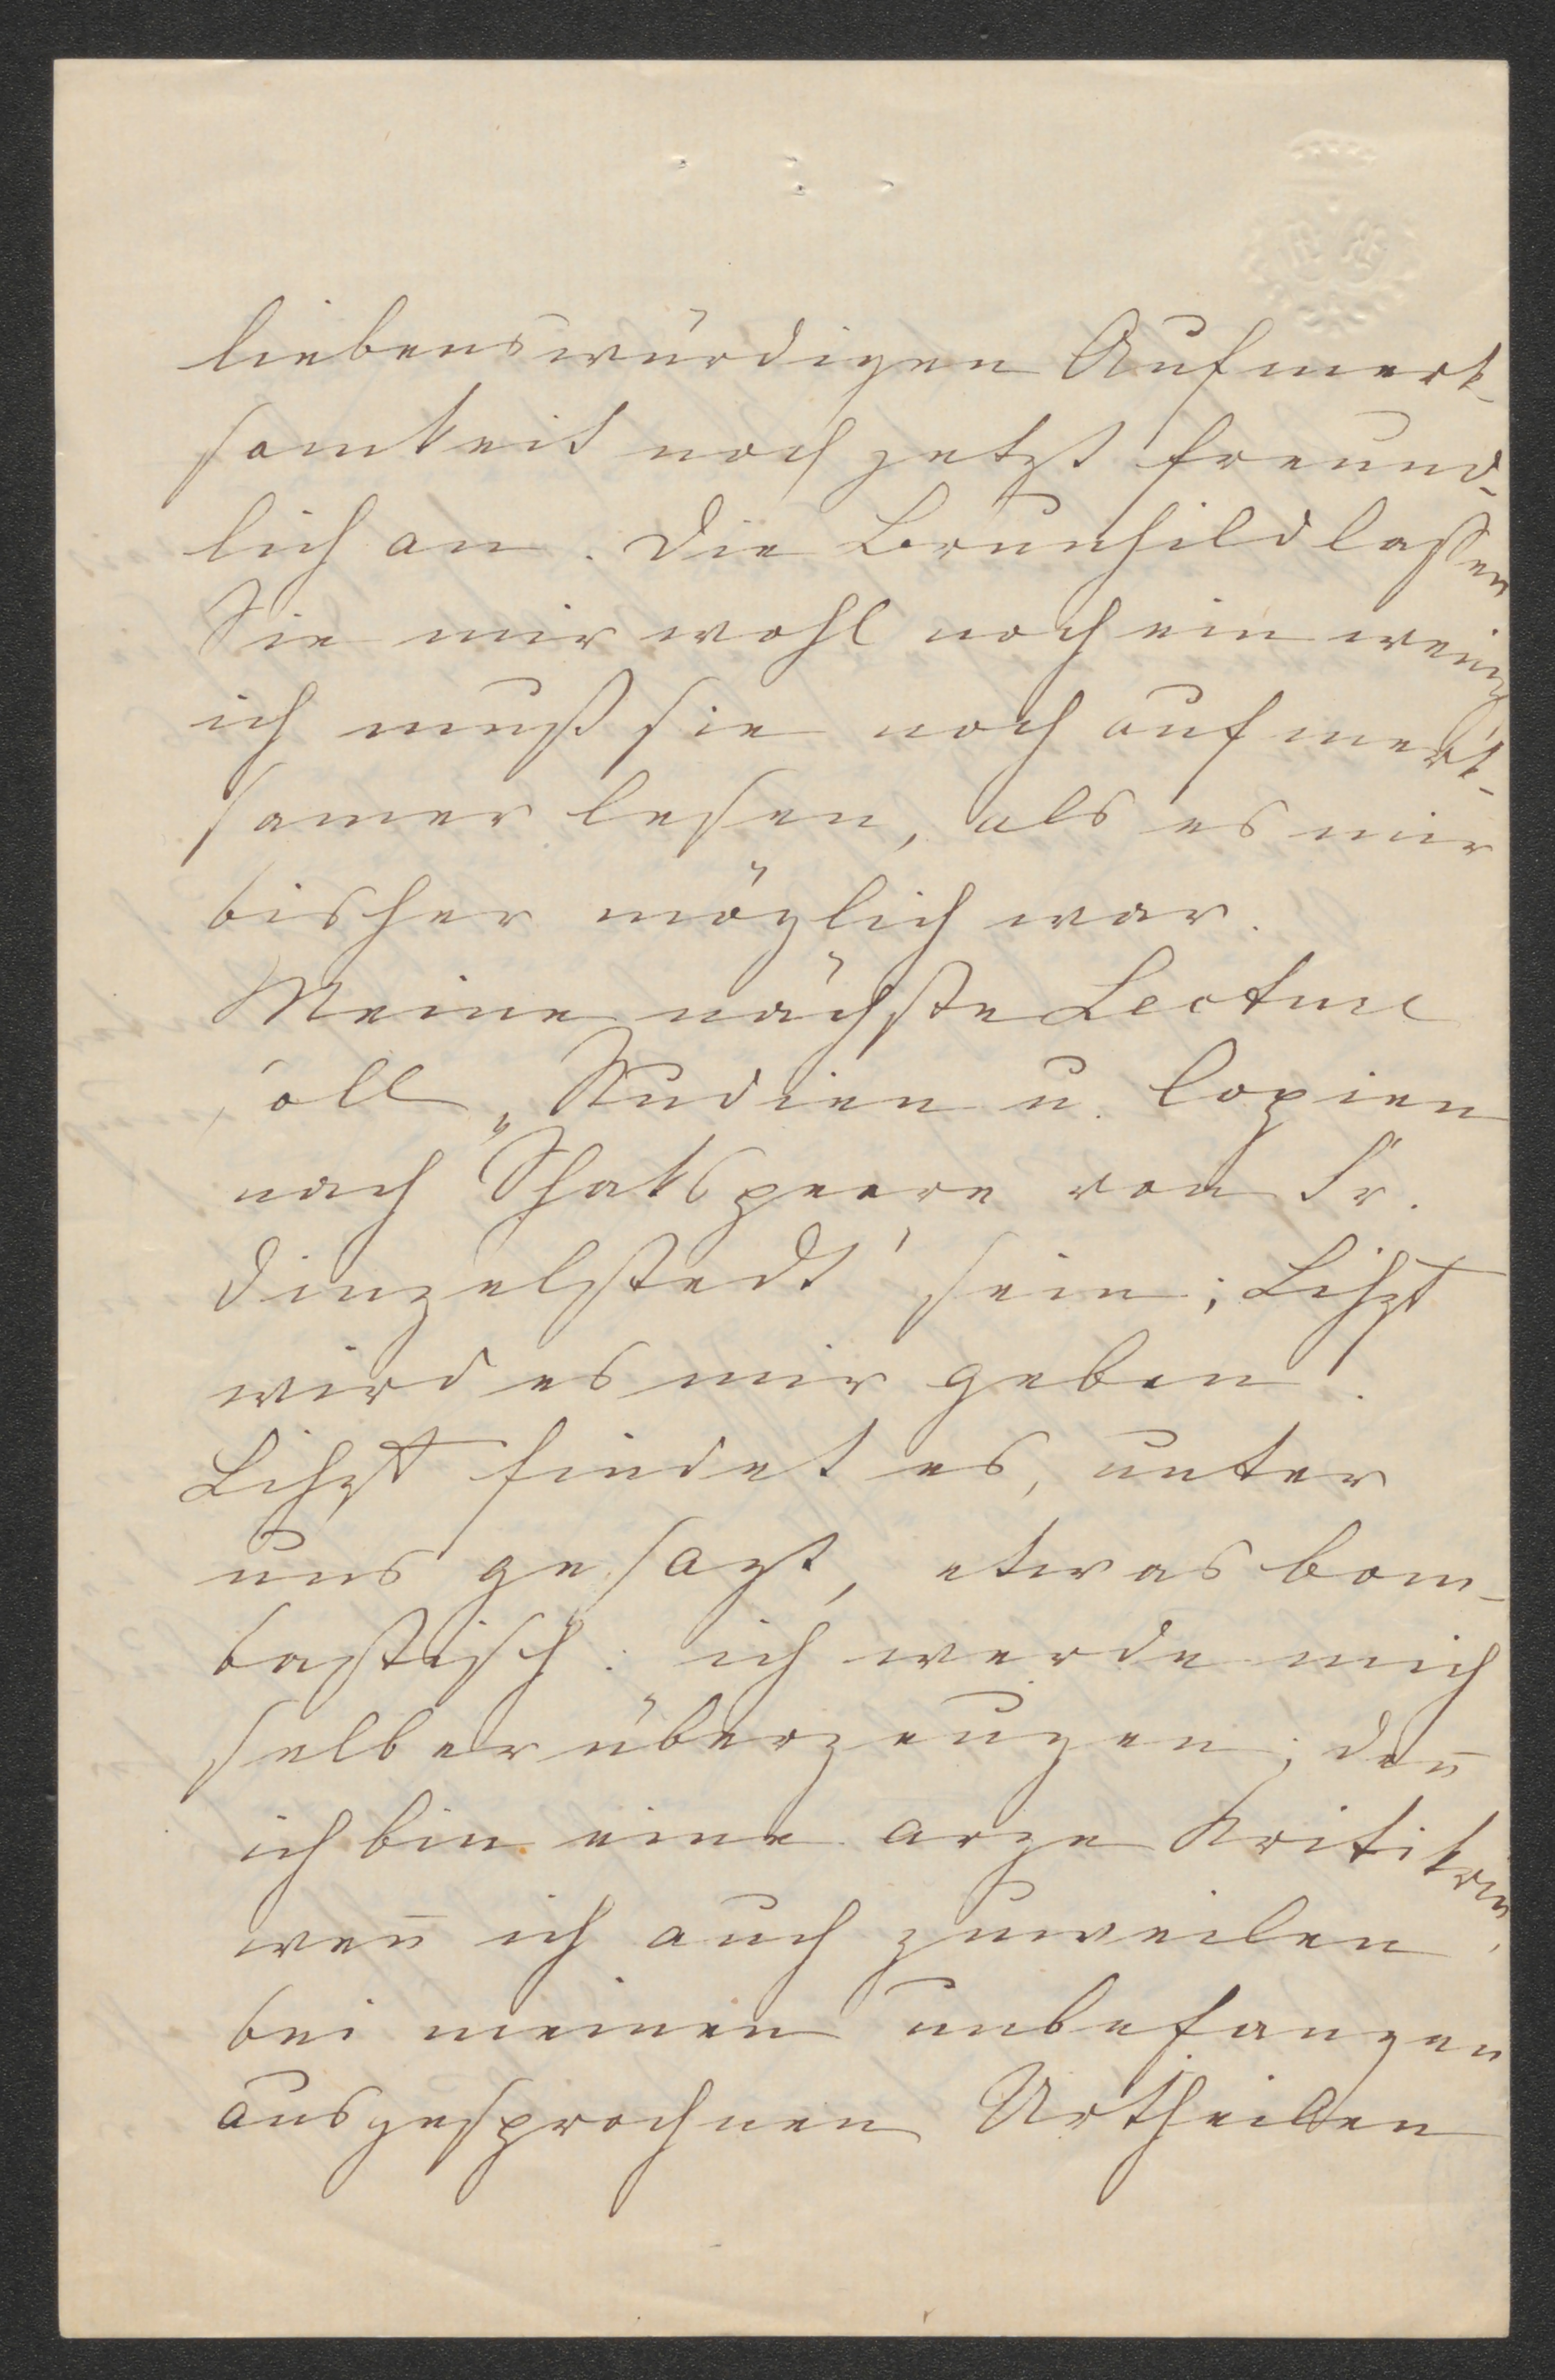 liebenswürdigen Aufmerk-
samkeit noch jetzt freund-
lich an. Die Brunhild lassen
Sie mir wohl noch ein wenig
ich muß sie noch aufmerk-
samer lesen, als es mir
bisher möglich war.
Meine nächste Lecture
soll „Studien u. Copien
nach Shakspeere von Fr.
Dingelstedt" sein; Lißt
wird es mir geben.
Lißt findet es, unter
uns gesagt, etwas bom-
bastisch: ich werde mich
selber überzeugen; den̄
ich bin eine arge Kritikrin,
wen̄ ich auch zuweilen
bei meinen unbefangen
ausgesprochnen Urtheilen